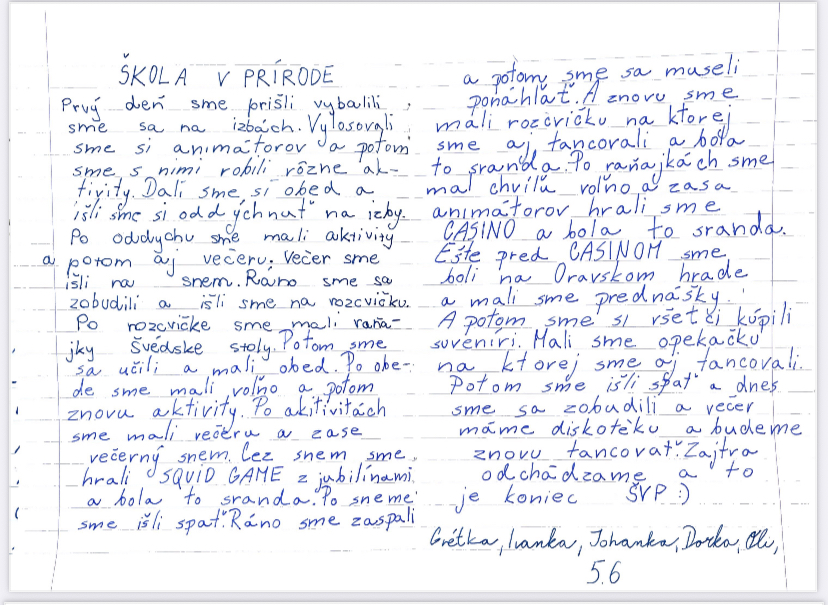 ŠKOLA V PRÍRODE
Prvý deň sme prišli vybalili
sme sa na izbách. Vylosovali
sme si animátorov a potom
sme s nimi robili rôzne ak-
tivity. Dali sme si obed a
išli sme si oddýchnuť na izby.
Po oddychu sme mali aktivity
a potom aj večeru. Večer sme
išli na snem. Ráno sme sa
zobudili a išli sme na rozcvičku.
Po rozcvičke sme mali raňa-
jky švédske stoly. Potom sme
sa učili a mali obed. Po obe-
de sme mali voľno a potom
znovu aktivity. Po akitivitách
sme mali večeru a zase
večerný snem. Čez snem sme
hrali SQUID GAME z jubilínami
a bola to sranda. Po sneme
sme išli spať. Ráno sme zaspali
a potom sme sa museli
ponáhľať. A znovu sme
mali rozcvičku na ktorej
sme aj tancovali a bola
to sranda. Po raňajkách sme
mal chvíľu voľno a zasa
animátorov hrali sme
CASINO a bola to sranda.
Ešte pred CASINOM sme
boli na Oravskom hrade
a mali sme prednášky.
A potom sme si všetci kúpili
suveníri. Mali sme opekačku
na ktorej sme aj tancovali.
Potom sme išli spať a dnes
sme sa zobudili a večer
máme diskotéku a budeme
znovu tancovať. Zajtra
odchádzame a to
je koniec ŠVP :)
Grétka, Ivanka, Johanka, Dorka, Oli,
5.6